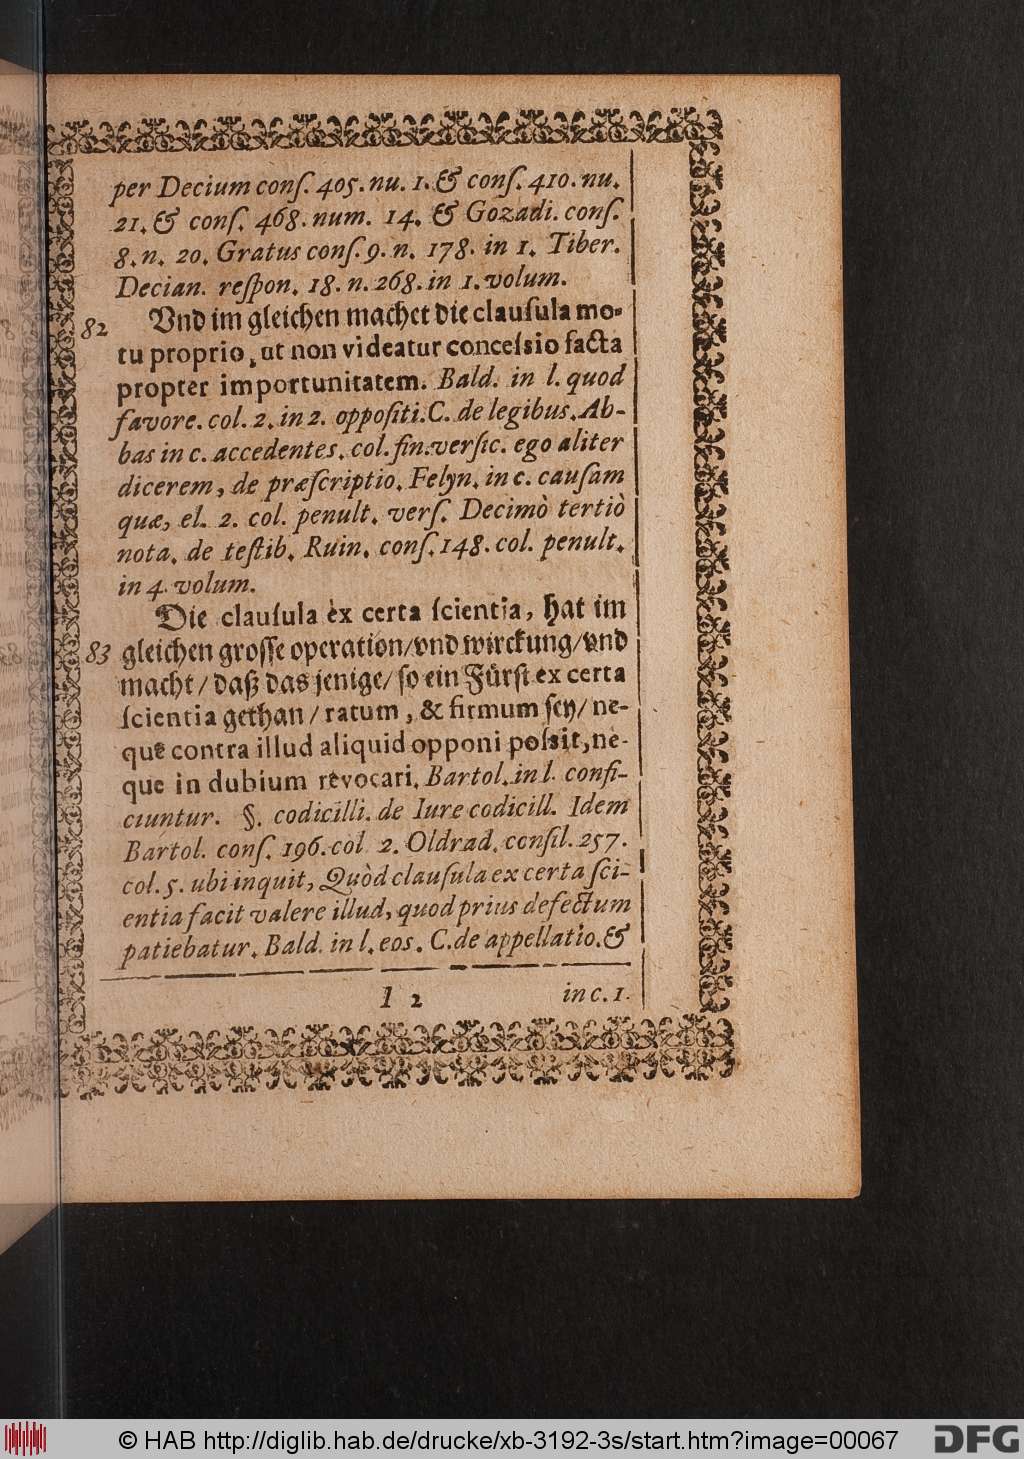 per Decium conſ. 405. nu. 1. & conſ. 410. nu.
21. & conſ. 468. num. 14. & Gozadi. conſ.
8. n. 20. Gratus conſ. 9. n. 178. in 1. Tiber.
Decian. reſpon. 18. n. 268. in 1. volum.
82 Vnd im gleichen machet die clauſula mo-
tu proprio, ut non videatur conceſsio facta
propter importunitatem. Bald. in l. quod
favore. col. 2. in 2. oppoſiti. C. de legibus. Ab-
bas in c. accedentes. col. fin. verſic. ego aliter
dicerem, de præſcriptio. Felyn. in c. cauſam
quæ, el. 2. col. penult. verſ. Decimò tertiò
nota. de teſtib. Ruin. conſ. 148. col. penult.
in 4. volum.
Die clauſula èx certa ſcientia, hat im
83 gleichen groſſe operation/ vnd wirckung/ vnd
macht/ daß das jenige/ ſo ein Fürſt ex certa
ſcientia gethan/ ratum, & firmum ſey/ ne-
quē contra illud aliquid opponi poſsit, ne-
que in dubium revocari. Bartol. in l. confi-
ciuntur. §. codicilli. de Iure codicill. Idem
Bartol. conſ. 196. col 2. Oldrad. conſil. 257.
col. 5. ubi inquit, Quòd clauſula ex certa ſci-
entia facit valere illud, quod prius defectum
patiebatur. Bald. in l. eos. C. de appellatio. &
l 2 in c. 1.
© HAB http://diglib.hab.de/drucke/xb-3192-3s/start.htm?image=00067
DFG